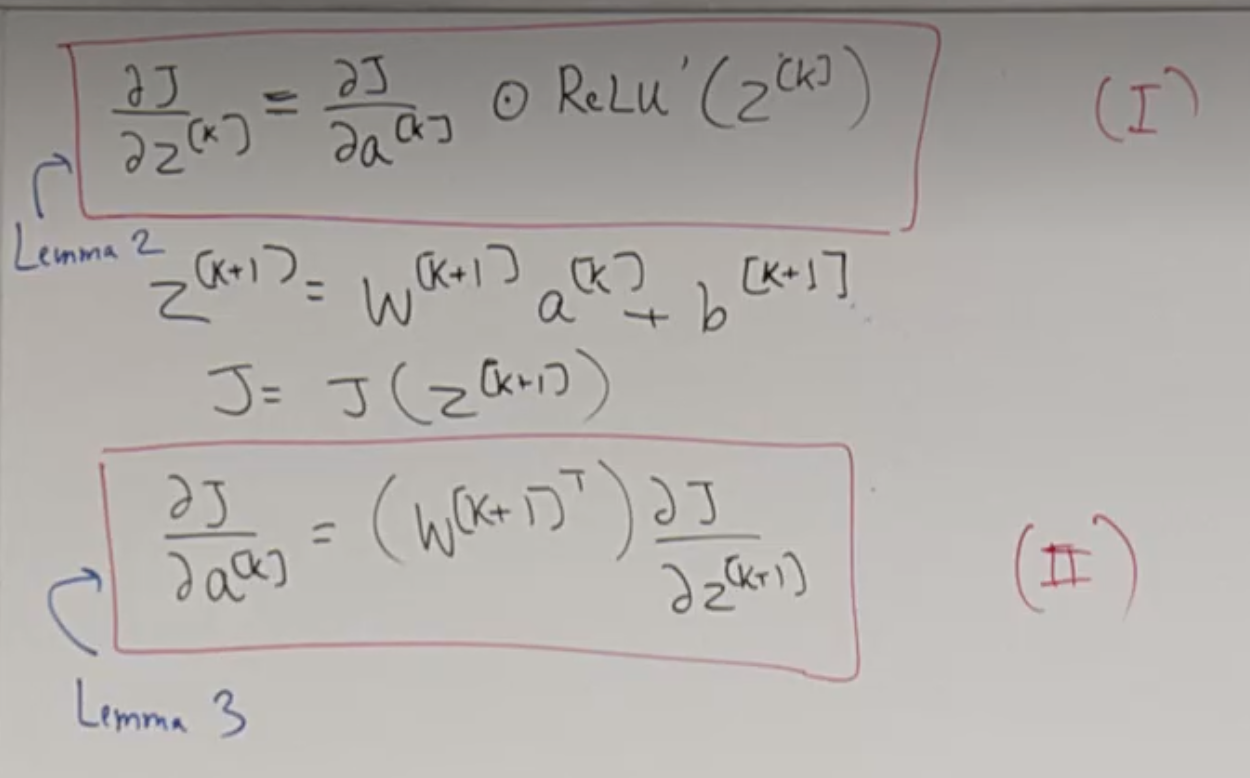 ∂J/∂z^[k] = ∂J/∂a^[k] ⊙ ReLU'(z^[k]) (I)
Lemma 2
z^[k+1] = W^[k+1] a^[k] + b^[k+1]
J = J(z^[k+1])
∂J/∂a^[k] = (W^[k+1]^T) ∂J/∂z^[k+1] (II)
Lemma 3